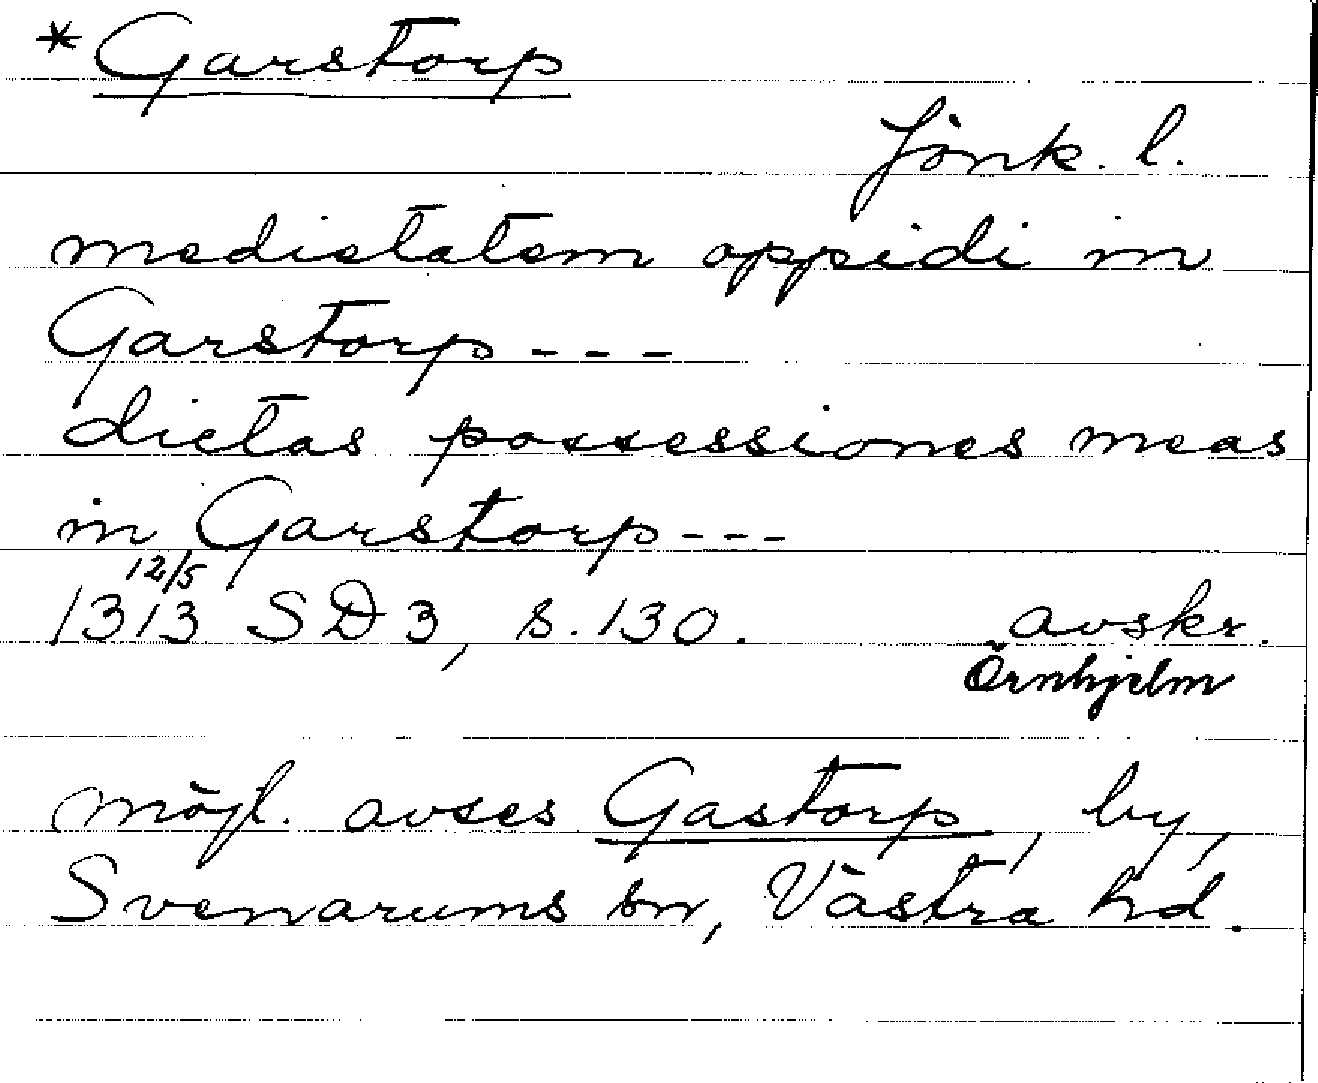 *Garstorp
Jönk. l.
medietatem oppidi in
Garstorp - - -
dictas possessiones meas
in Garstorp - - -
12/5
1313 SD 3, s. 130. avskr.
Örnhjelm
möjl. avses Gastorp, by,
Svenarums sn, Västra hd.